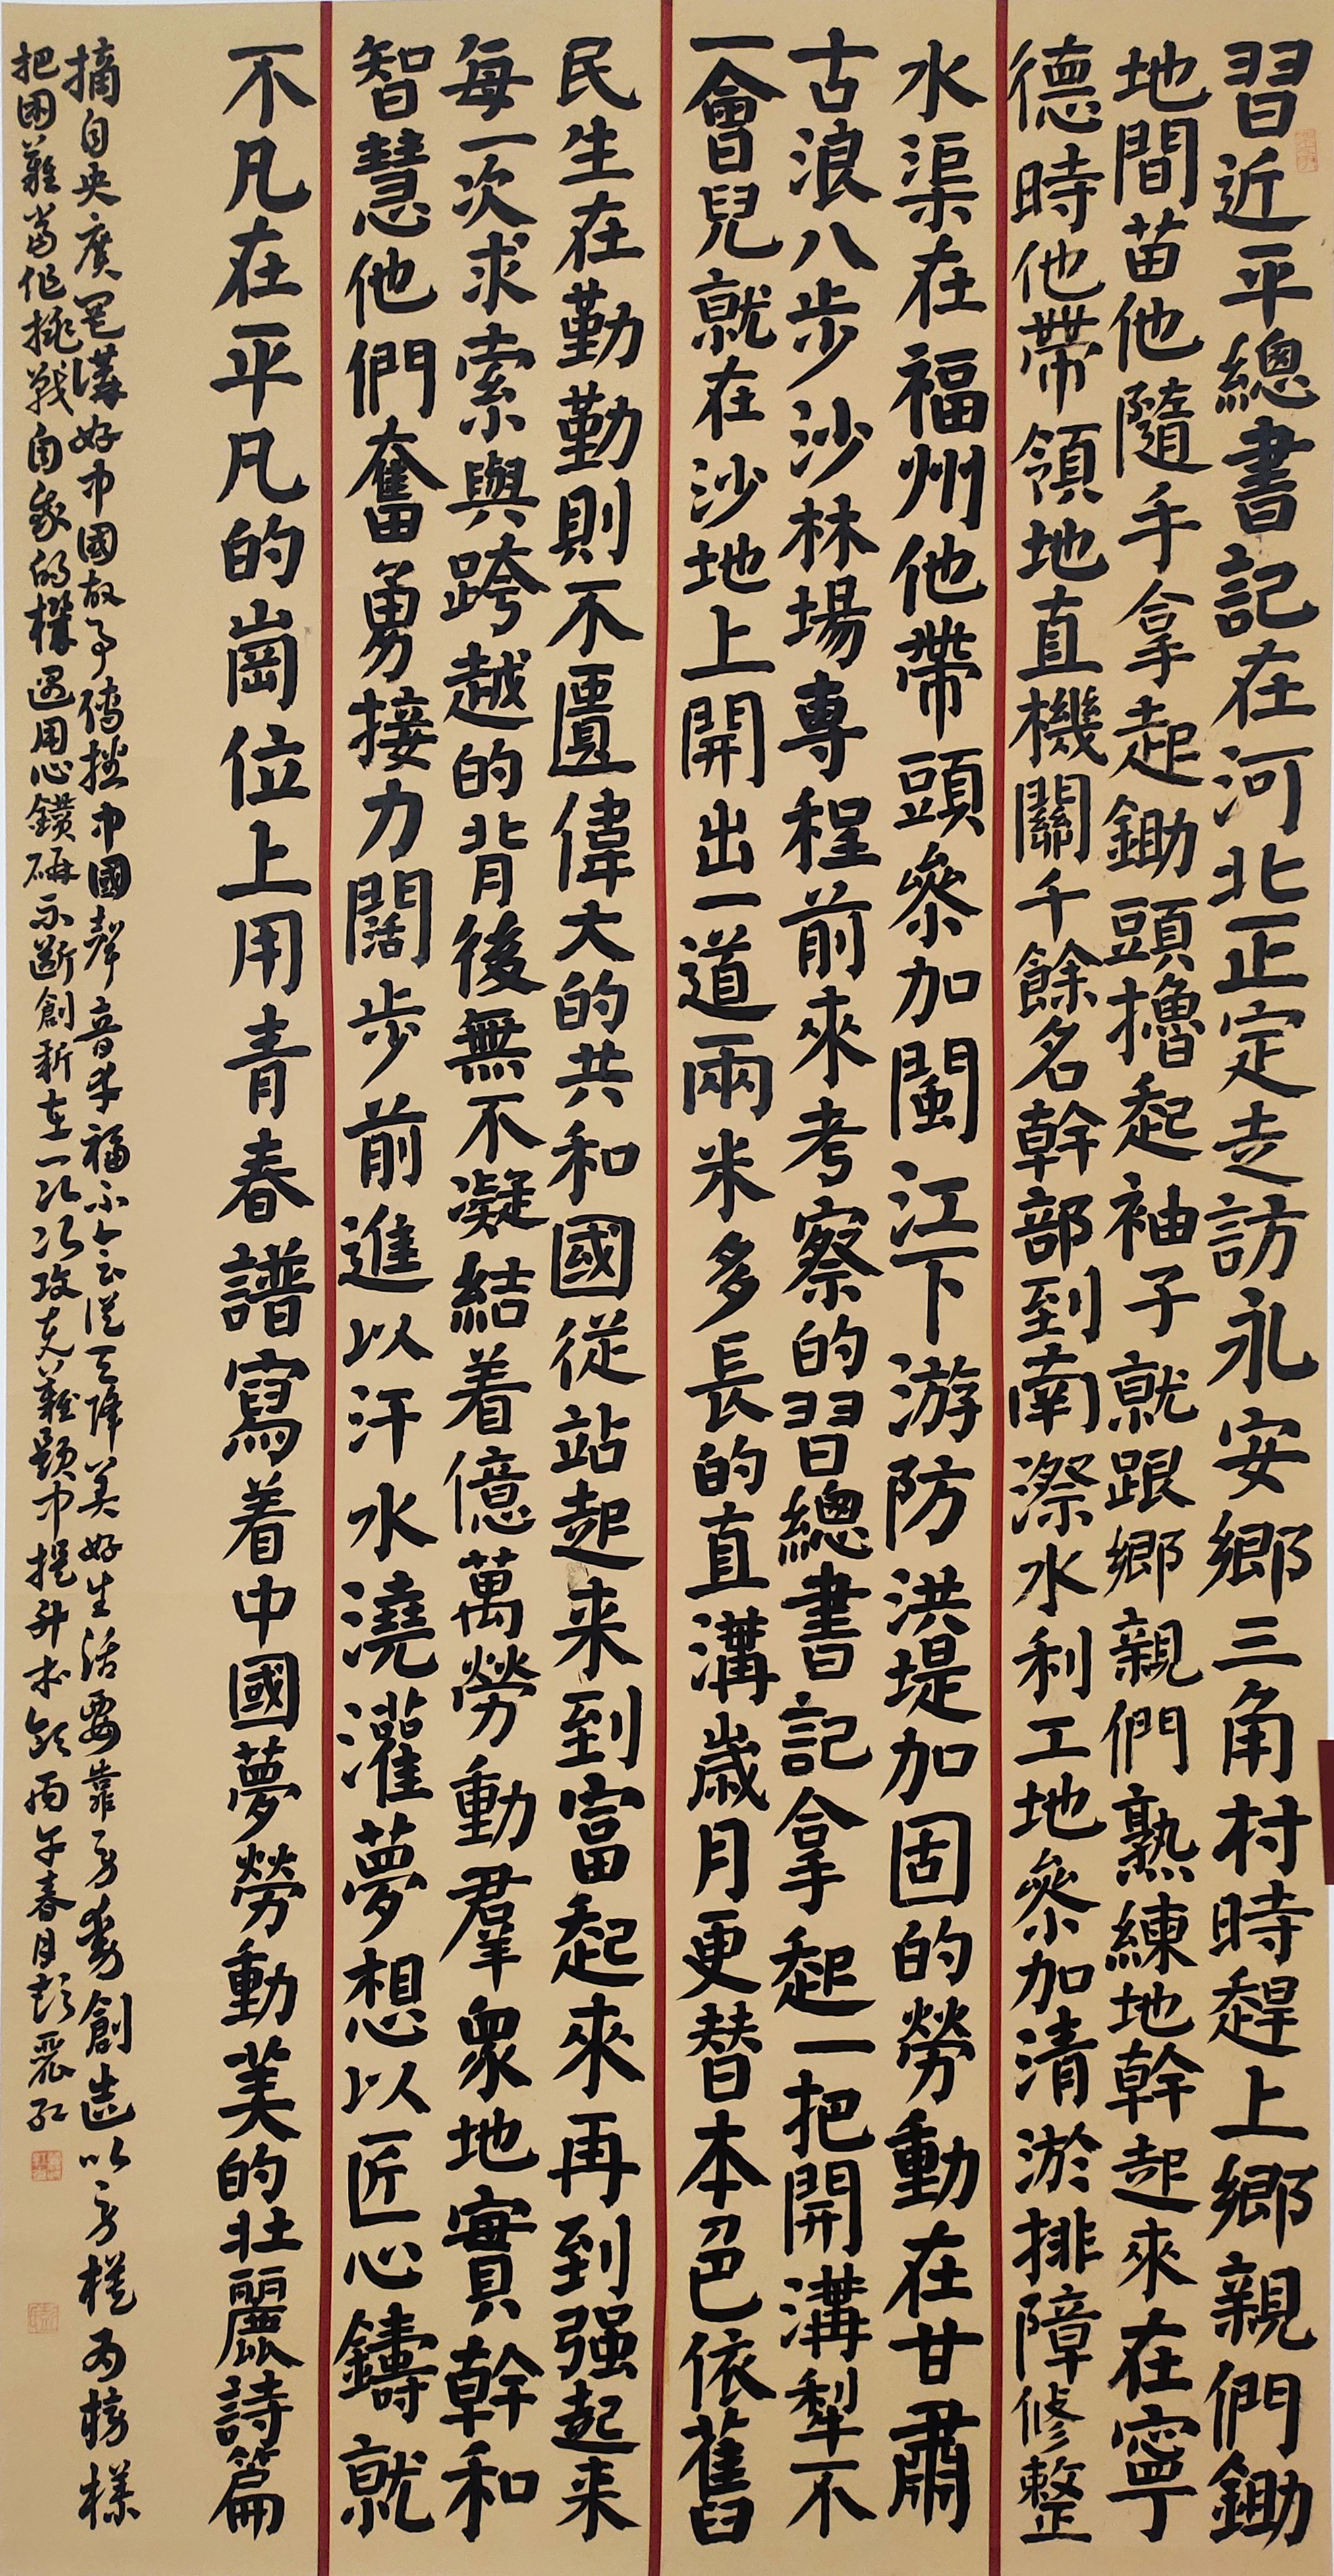 習近平總書記在河北正定走訪永安鄉三角村時趕上鄉親們鋤
地間苗他隨手拿起鋤頭擼起袖子就跟鄉親們熟練地幹起來在寧
德時他帶領地直機關千餘名幹部到南漈水利工地參加清淤排障修整
水渠在福州他帶頭參加閩江下游防洪堤加固的勞動在甘肅
古浪八步沙林場專程前來考察的習總書記拿起一把開溝犁不
一會兒就在沙地上開出一道兩米多長的直溝歲月更替本色依舊
民生在勤勤則不匱偉大的共和國從站起来到富起來再到强起来
每一次求索與跨越的背後無不凝結着億萬勞動群衆地實幹和
智慧他們奮勇接力闊步前進以汗水澆灌夢想以匠心鑄就
不凡在平凡的崗位上用青春譜寫着中國夢勞動美的壯麗詩篇
摘自央廣網講好中國故事傳播中國聲音幸福不會從天降美好生活要靠勞動創造以勞模為榜樣
把困難當作挑戰自我的機遇用心鑽研不斷創新在一次次攻克難題中提升本領丙午春月彭麗紅